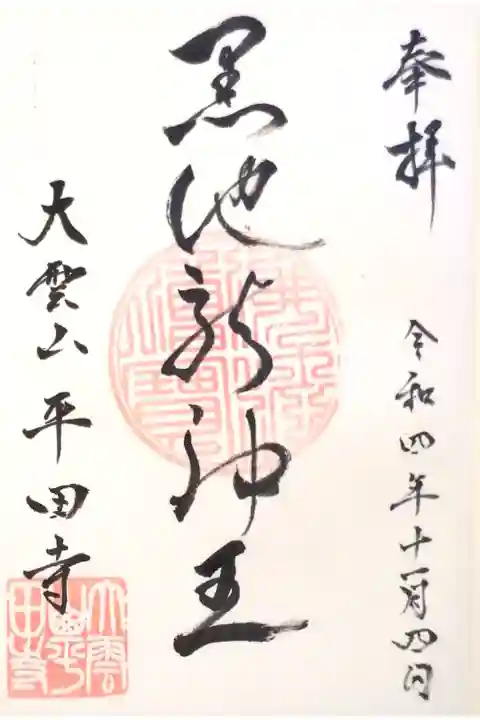 奉拝
令和四年十一月四日
黒池龍神王
大雲山平田寺